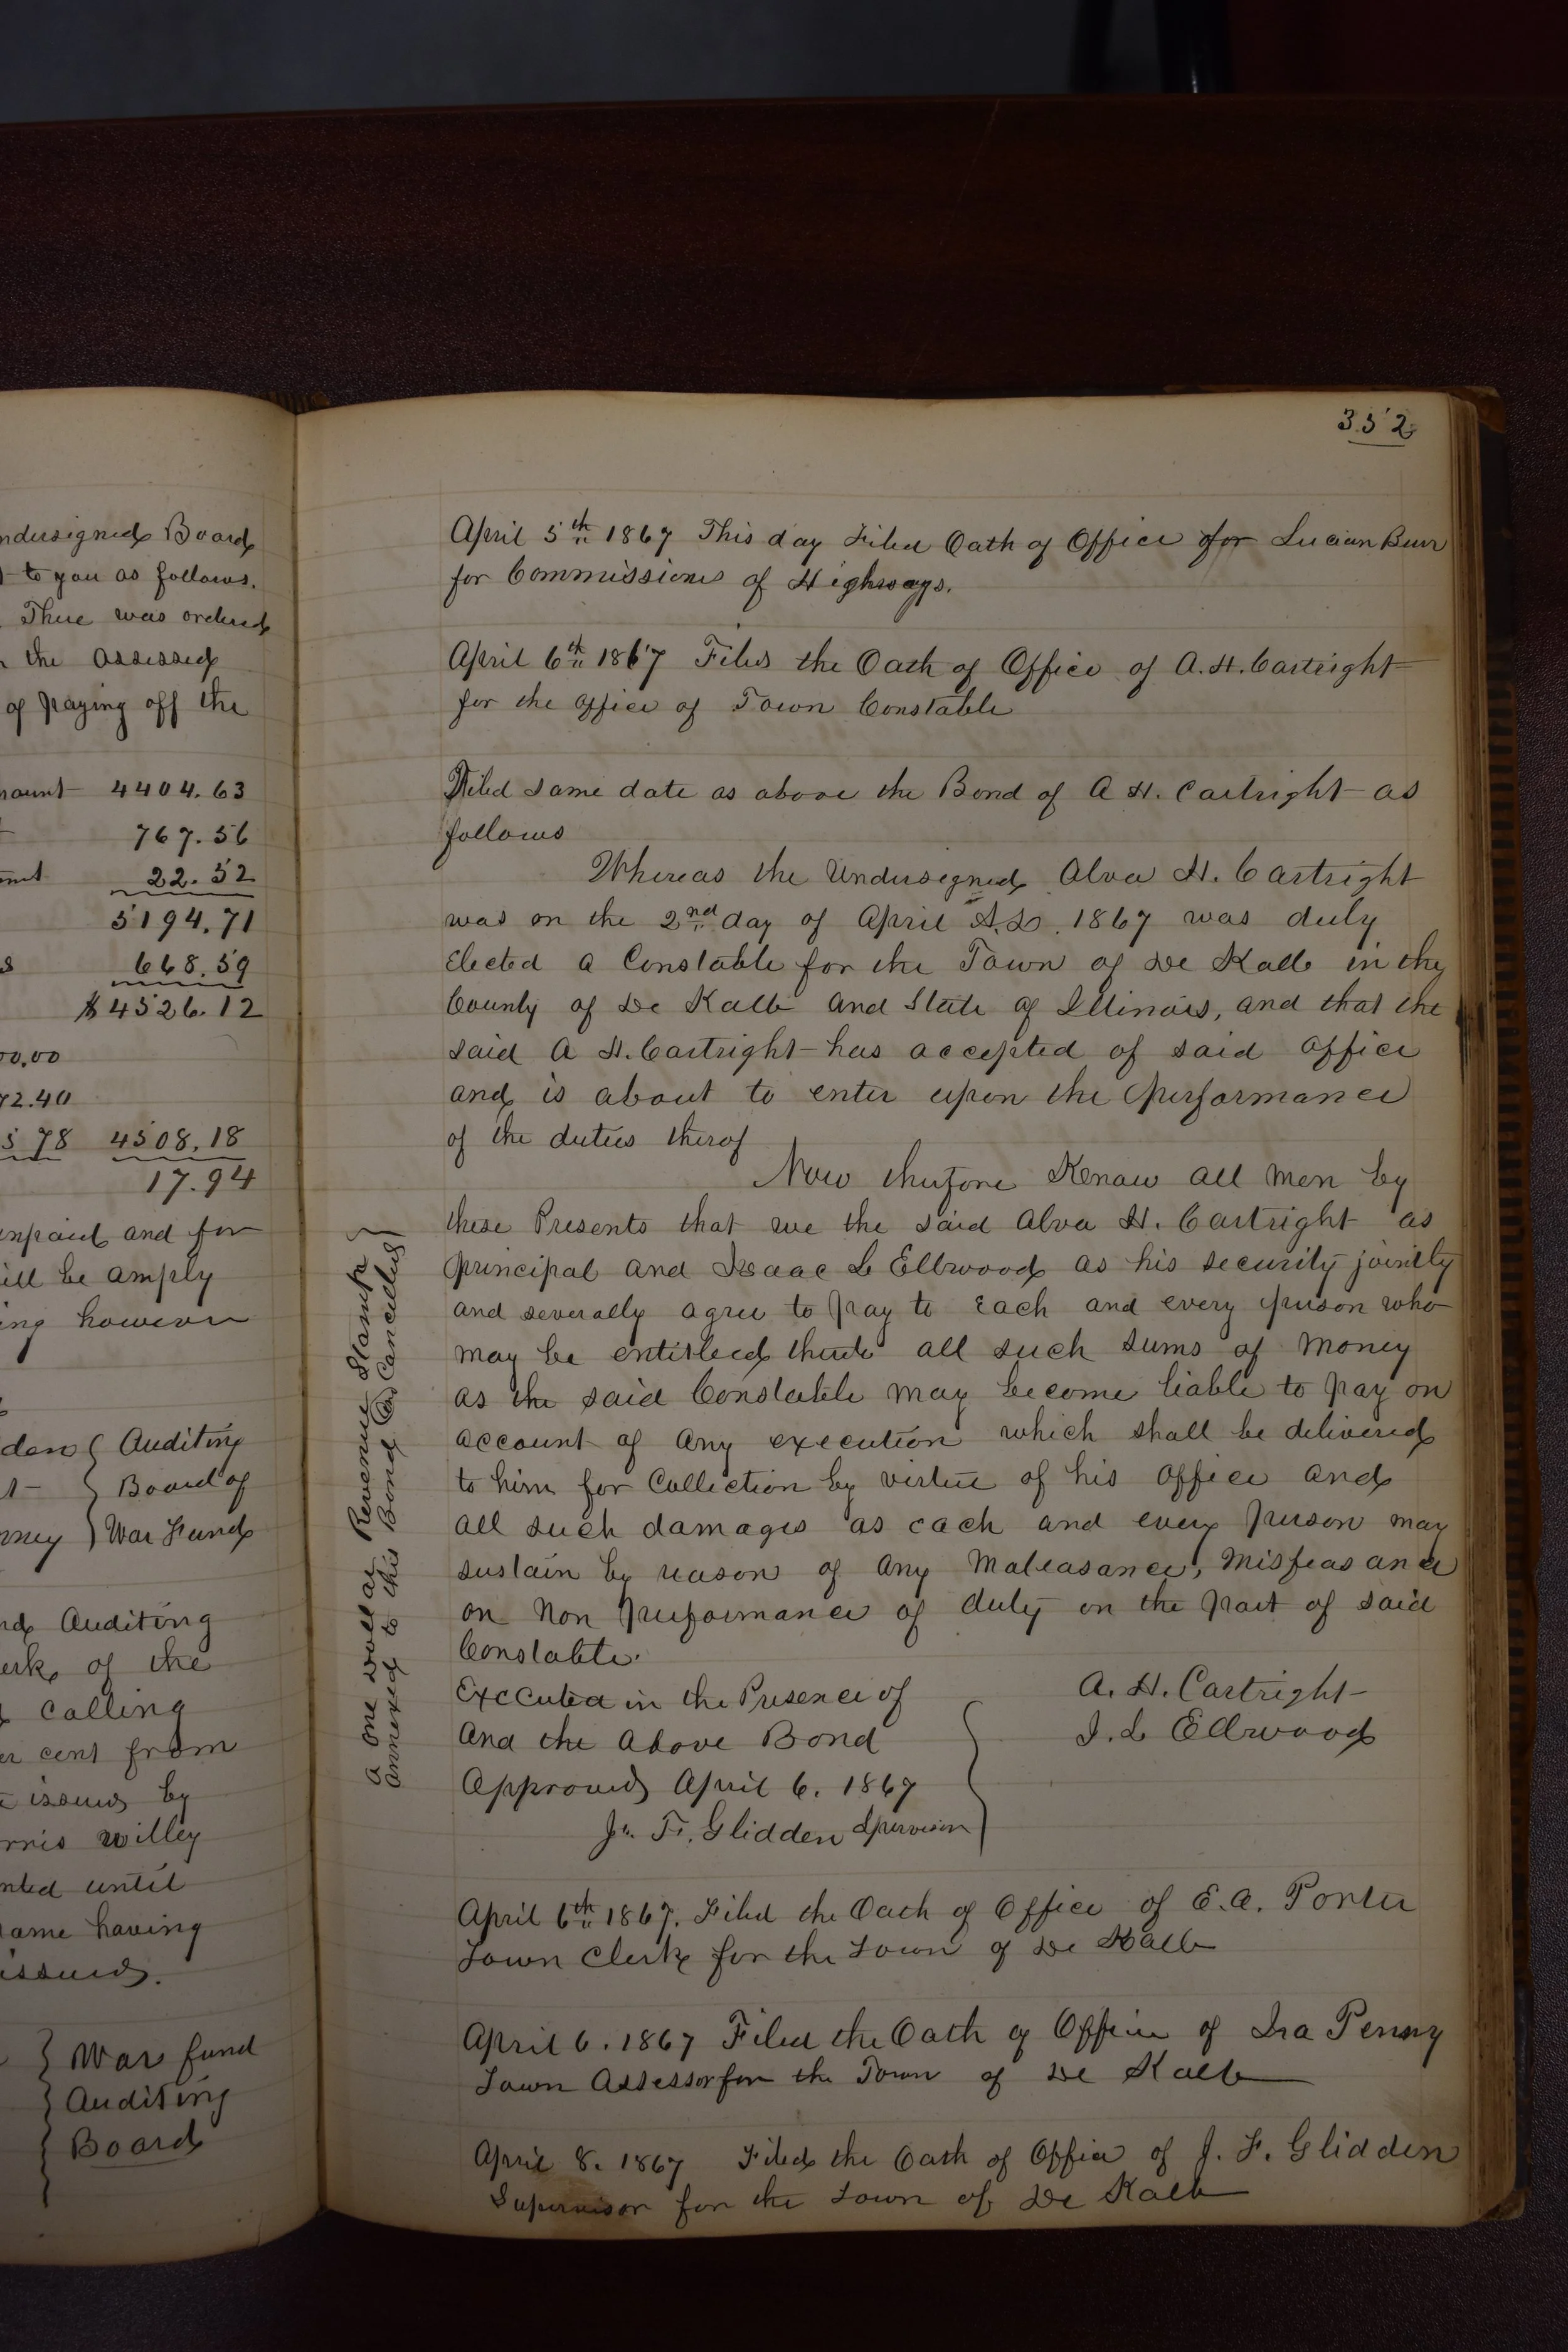 ndersigned Board
to you as follows.
There was ordered
the assessed
of paying off the
mount 4404.63
767.56
22.52
5194.71
668.59
$4526.12
00.00
72.40
5 78 4508.18
17.94
unpaid and for
ill be amply
ing however
den } Auditing
Board of
nney } War Fund
nd Auditing
erk of the
calling
er cent from
issued by
rris Willey
nted until
same having
issued.
War fund
Auditing
Board
352
April 5th 1867 This day Filed Oath of Office for Lucian Burr
for Commissioner of Highways.
April 6th 1867 Filed the Oath of Office of A. H. Cartright
for the office of Town Constable
Filed same date as above the Bond of A H. Cartright as
follows
Whereas the Undersigned Alva H. Cartright
was on the 2nd day of April A.D. 1867 was duly
Elected a Constable for the Town of De Kalb in the
County of De Kalb and State of Illinois, and that the
said A H. Cartright has accepted of said office
and is about to enter upon the performance
of the duties therof
Now therefore Know all men by
these Presents that we the said Alva H. Cartright as
principal and Isaac L Ellwood as his security jointly
and severally agree to pay to Each and every person who
may be entitled thereto all such sums of money
as the said Constable may become liable to pay on
account of any execution which shall be delivered
to him for Collection by virtue of his office and
all such damages as each and every person may
sustain by reason of any Maleasance, Misfeasance
or Non performance of duty on the part of said
Constable.
Executed in the Presence of
And the Above Bond
Approved April 6. 1867
J. F. Glidden Supervisor
A. H. Cartright
I. L Ellwood
A one dollar Revenue Stamp }
annexed to this Bond & Cancelled }
April 6th 1867. Filed the Oath of Office of E. A. Porter
Town Clerk for the Town of De Kalb
April 6. 1867 Filed the Oath of Office of Ira Penny
Town Assessor for the Town of De Kalb
April 8. 1867 Filed the Oath of Office of J. F. Glidden
Supervisor for the Town of De Kalb